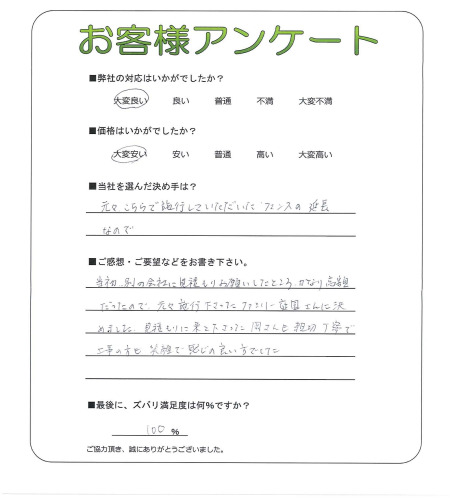 お客様アンケート
■弊社の対応はいかがでしたか？
大変良い 良い 普通 不満 大変不満
■価格はいかがでしたか？
大変安い 安い 普通 高い 大変高い
■当社を選んだ決め手は？
元々こちらで施行していただいたフェンスの延長
なので
■ご感想・ご要望などをお書き下さい。
当初、別の会社に見積もりお願いしたところ、かなり高額
だったので、元々施行下さったファミリー庭園さんに決
めました。見積もりに来て下さった岡さんも親切丁寧で
工事の方も笑顔で感じの良い方でした
■最後に、ズバリ満足度は何％ですか？
100 ％
ご協力頂き、誠にありがとうございました。